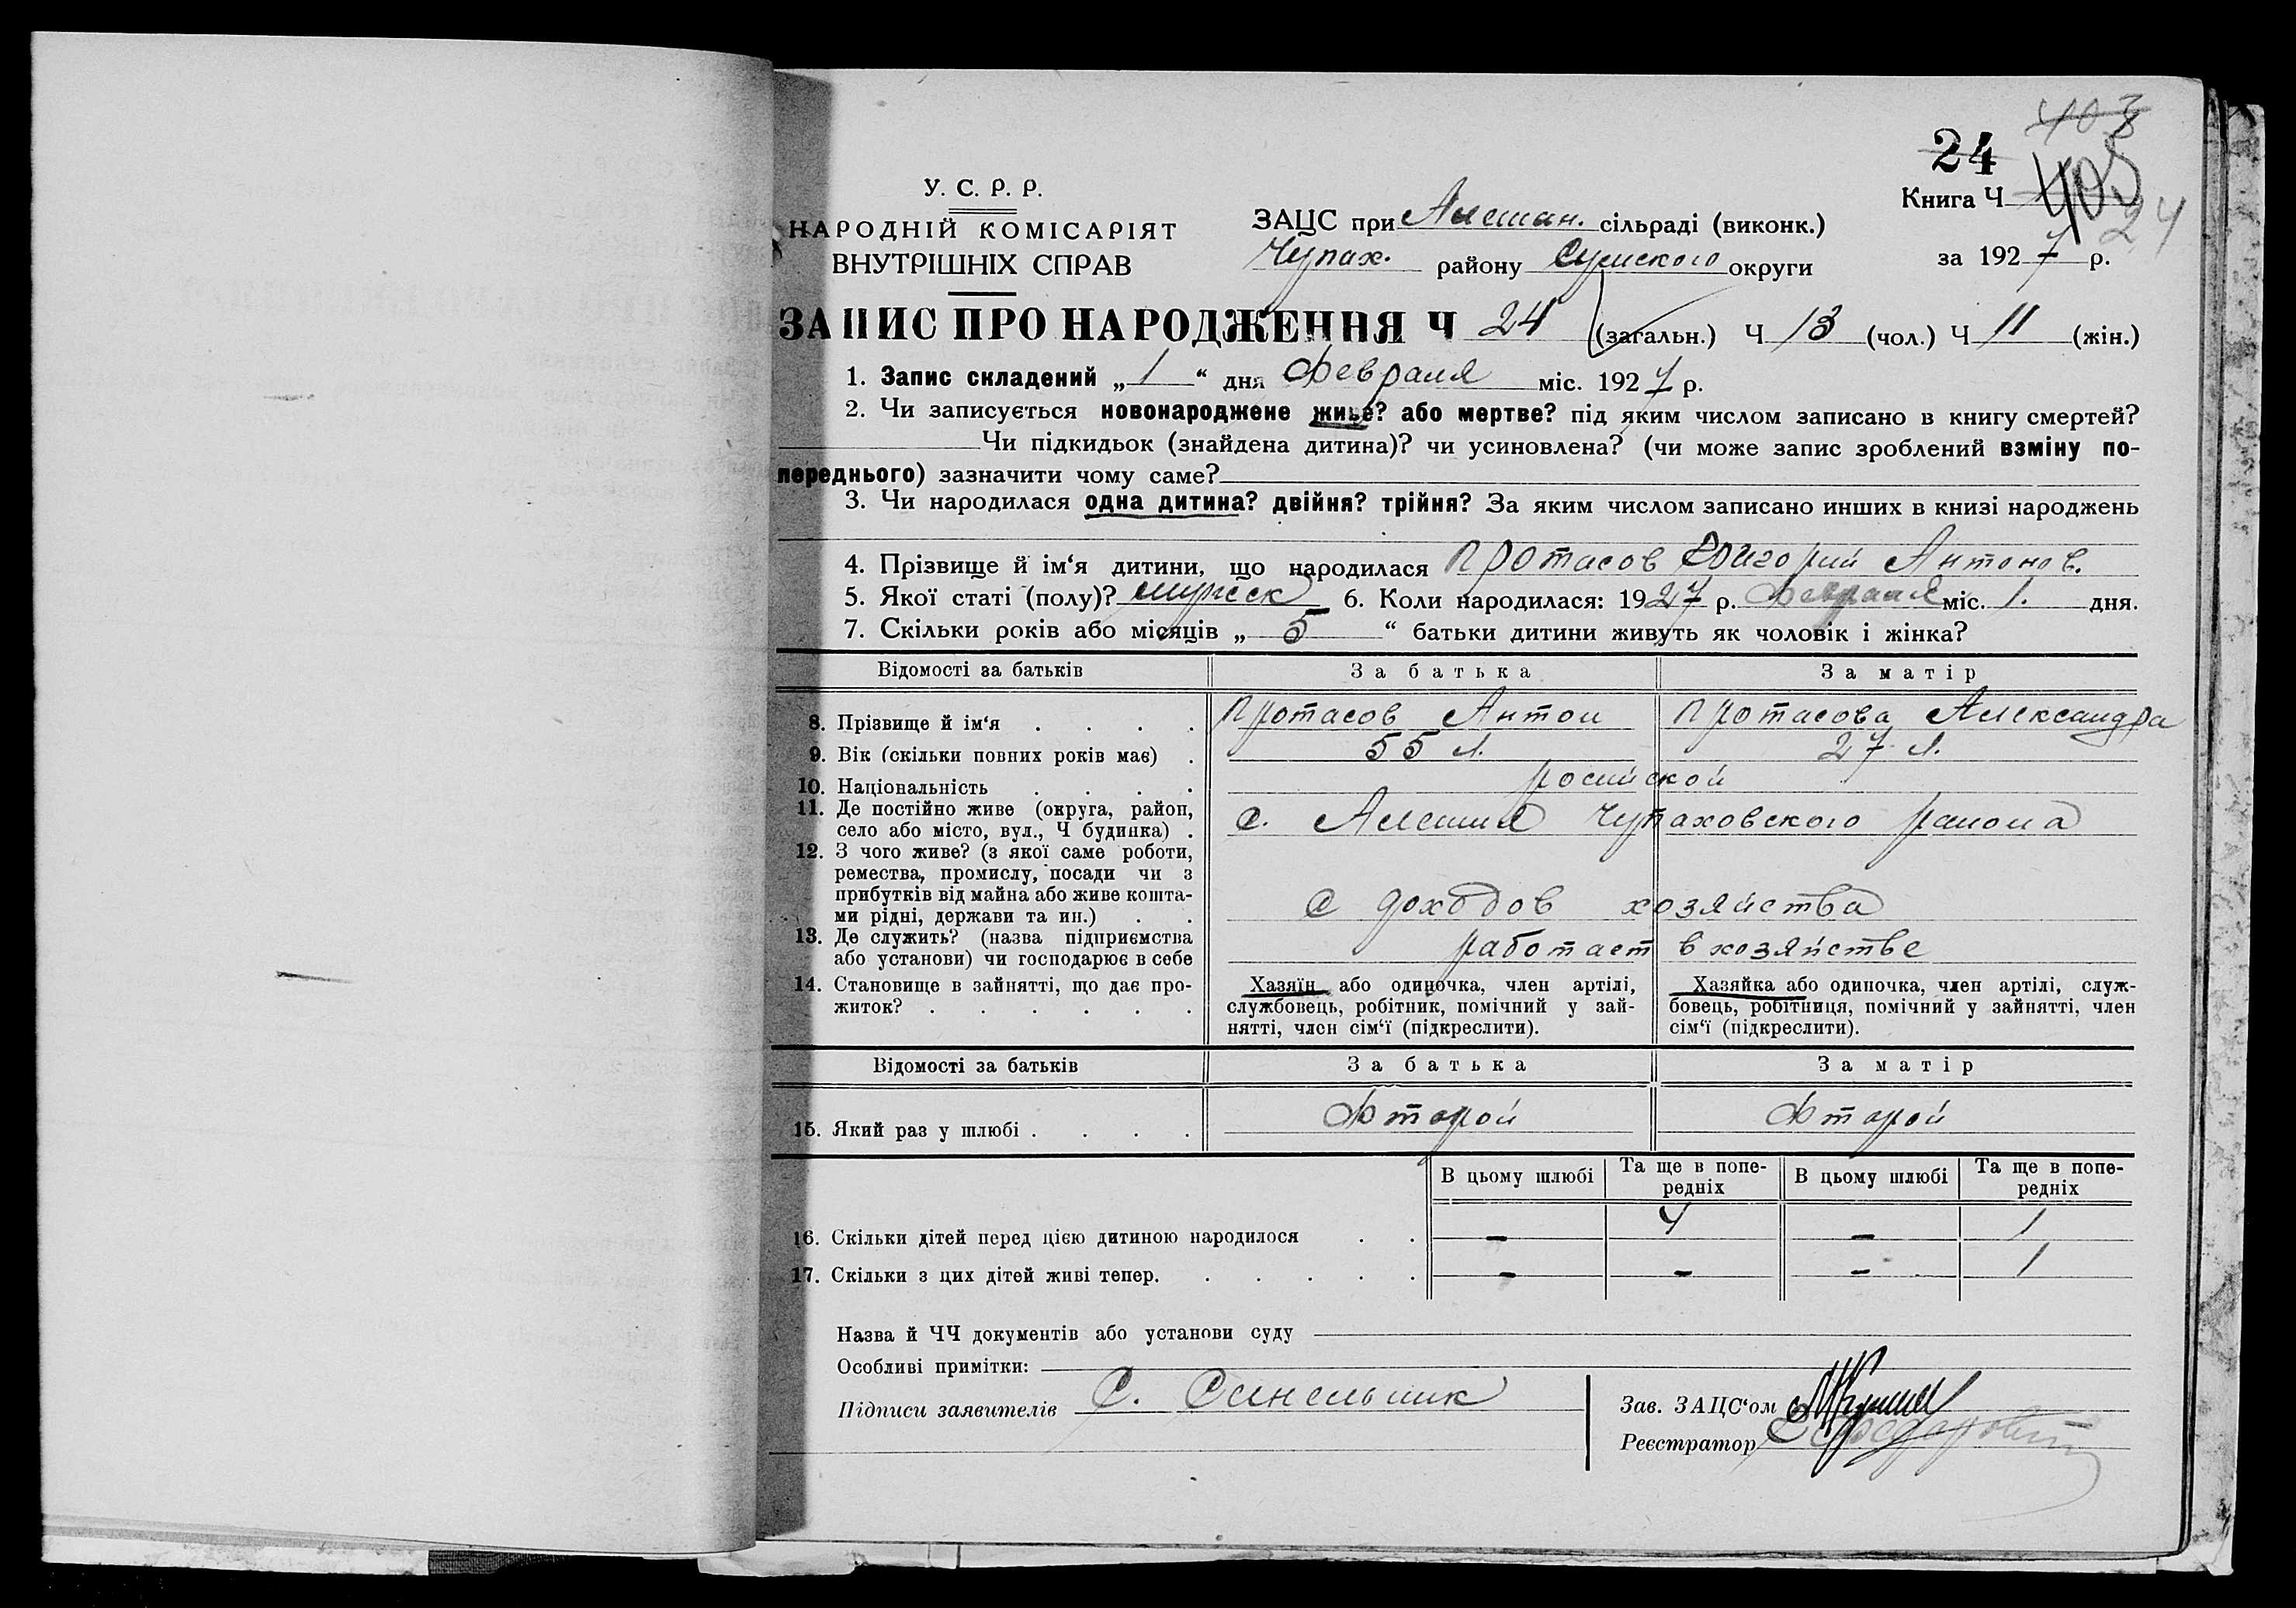 403
24
405
24
У. С. Р. Р.
НАРОДНІЙ КОМІСАРІЯТ
ВНУТРІШНІХ СПРАВ
Книга Ч
ЗАЦС при Алешан. сільраді (виконк.)
Чупах. району Сумского округи
за 1927 р.
ЗАПИС ПРО НАРОДЖЕННЯ Ч 24 (загальн.) Ч 13 (чол.) Ч 11 (жін.)
1. Запис складений „ 1 “ дня Февраля міс. 1927 р.
2. Чи записується новонароджене живе? або мертве? під яким числом записано в книгу смертей?
Чи підкидьок (знайдена дитина)? чи усиновлена? (чи може запис зроблений взміну по-
переднього) зазначити чому саме?
3. Чи народилася одна дитина? двійня? трійня? За яким числом записано инших в книзі народжень
4. Прізвище й ім‘я дитини, що народилася Протасов Григорий Антонов.
5. Якої статі (полу)? мужеск 6. Коли народилася: 1927 р. Февраля міс. 1. дня.
7. Скільки років або місяців „ 5 “ батьки дитини живуть як чоловік і жінка?
Відомості за батьків За батька За матір
8. Прізвище й ім‘я . . . . Протасов Антон Протасова Александра
9. Вік (скільки повних років має) . 55 л. 27 л.
10. Національність . . . . росийской
11. Де постійно живе (округа, район,
село або місто, вул., Ч будинка) . с. Алешня Чупаховского района
12. З чого живе? (з якої саме роботи,
ремества, промислу, посади чи з
прибутків від майна або живе кошта-
ми рідні, держави та ин.) . . С доходов хозяйства
13. Де служить? (назва підприємства
або установи) чи господарює в себе работает в хозяйстве
14. Становище в зайнятті, що дає про-
житок? . . . . . .
Хазяїн або одиночка, член артілі,
службовець, робітник, помічний у зай-
нятті, член сім‘ї (підкреслити).
Хазяйка або одиночка, член артілі, служ-
бовець, робітниця, помічний у зайнятті, член
сім‘ї (підкреслити).
Відомості за батьків За батька За матір
15. Який раз у шлюбі . . . . Второй Второй
В цьому шлюбі Та ще в попе-
редніх В цьому шлюбі Та ще в попе-
редніх
16. Скільки дітей перед цією дитиною народилося . . - 4 - 1
17. Скільки з цих дітей живі тепер. . . . . . - - - 1
Назва й ЧЧ документів або установи суду
Особливі примітки:
Підписи заявителів С. Синельник
Зав. ЗАЦС‘ом
Реєстратор